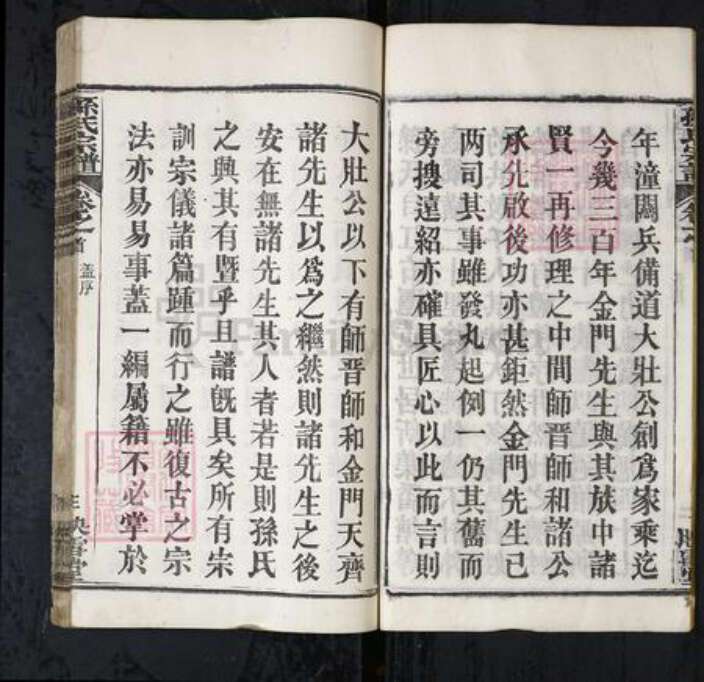 年潼關兵備道大壯公創爲家乘迄
今幾三百年金門先生與其族中諸
賢一再修理之中間師晋師和諸公
承先啟後功亦甚鉅然金門先生已
两司其事雖發丸起例一仍其舊而
旁搜遠紹亦確具匠心以此而言則
大壯公以下有師晋師和金門天齊
諸先生以爲之繼然則諸先生之後
安在無諸先生其人者若是則孫氏
之興其有曁乎且譜旣具矣所有宗
訓宗儀諸篇踵而行之雖復古之宗
法亦易易事蓋一編屬籍不必掌於
孫氏宗譜
卷之首
蓋序